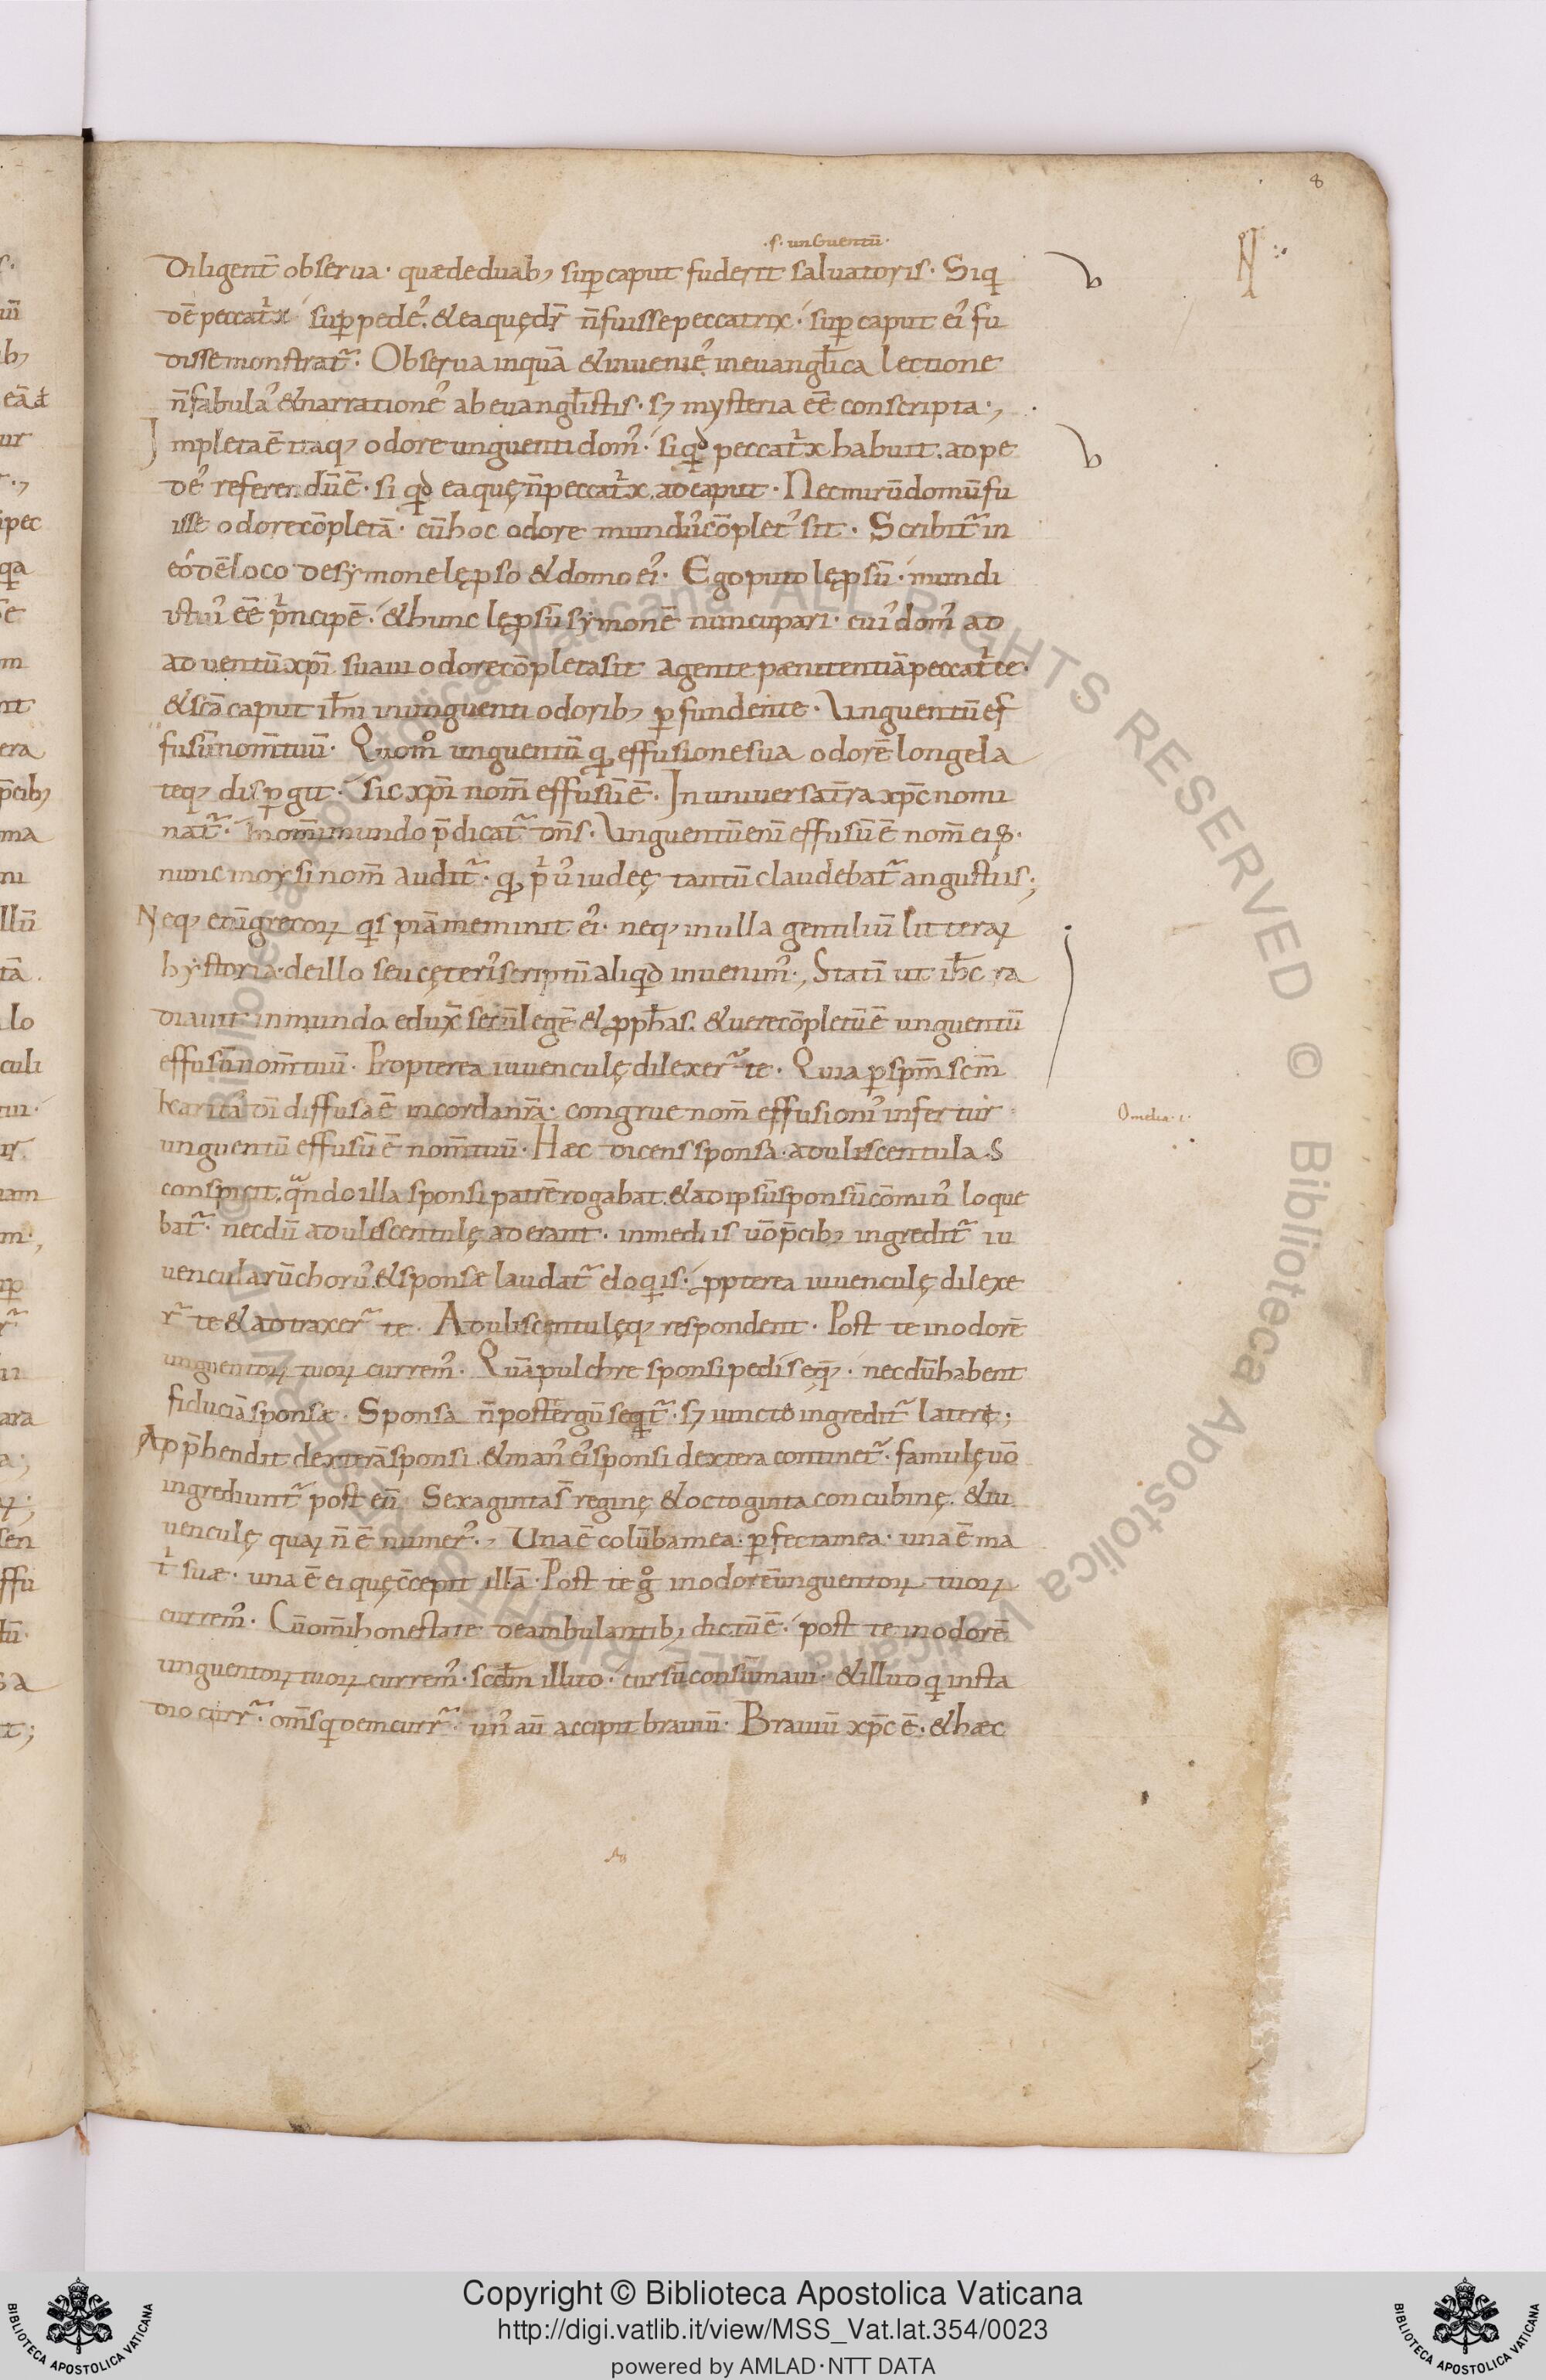 8
.s. unguentū.
Diligent̄ obserua. quædeduab; sup̱caput fuderit saluatoris. Siq̱
dē peccatⁱx sup̱pede᾽. & eaquędr̄ n̄fuissepeccatrix. sup̱caput ei᾽ fu
dissemonstrat᷑. Obserua inquā & inuenie᾽ ineuangl̄ica lectione
n̄fabula᾽ & narratione᾽ ab euangl̄istis. sꝫ mysteria eē conscripta.,
Impletaē itaq; odore unguenti dom᾽. si qđ peccatⁱx habuit. ad pe
de᾽ referendūē. si qđ eaquę n̄peccatⁱx. adcaput. Necmirūdomūfu
isse odorecōpletā. cūhoc odore mund᾽cōplet᾽ sit. Scribit᷑ in
eōdēloco desymonelępso & domo ei᾽. Egoputo lępsū. mundi
istui᾽ eē pⁱncipē. & hunc lępsūsymonē nuncupari. cui᾽ dom᾽ ad
aduentūxp̄i suaui odorecōpletasit agentepænitentiāpeccatⁱce.
& sc̄acaput ih̄u inunguenti odorib; ꝑfundente. Unguentūef
fusūnom̄tuū. Quom° unguentū q̱ effusionesua odorē longela
teq; disꝑgit. sic xp̄i nom̄ effusūē. Inuniuersat̄ra xp̄c nomi
nat᷑. Inom̄imundo p̄dicat᷑ dn̄s. Unguentūeni effusūē nom̄ ei᾽.
nunc moysi nom̄ audit᷑. q̱ pⁱ᾽ iudeę tantū claudebat᷑ angustiis;
Neq; enīgrecoꝝ q̱spiāmeminit ei᾽. neq; inulla gentiliū litteraꝝ
hystoria. deillo seu cęteri᾽scriptū aliqđ inuenim᾽., Statī ut ih̄c ra
diauit inmundo edux̄ secūlegē & ꝓph̄as. & uerecōpletūē unguentū
effusūnom̄tuū. Propterea iuuenculę dilexer᷑ te. Quia ꝑsp̄m sc̄m
karitās dī diffusaē incordan̄ra. congrue nom̄ effusioni᾽ infertur
unguentū effusūē nom̄tuū. Hæc dicens sponsa. adulescentulas
conspicit. q̄ndo illa sponsi patrērogabat. & ad ipsūsponsūcōmin᾽ loque
bat᷑. necdū adulescentulę aderant. inmediis uō p̄cib; ingredit᷑ iu
uencularūchor᾽. & sponsæ laudat᷑ eloq̱is. ꝓpterea iuuenculę dilexe
r᷑ te & adtraxer᷑ te. Adulescentulęq; respondent. Post te inodorē
unguentoꝝ tuoꝝ currem᾽. Quāpulchre sponsi pedisequę. necdūhabent
fiduciāsponsæ. Sponsa n̄posttergū seq̱t᷑. sꝫ iuncto ingredit᷑ latere;
App̄hendit dexterāsponsi. & man᾽ ei᾽sponsi dextera continet᷑. famulęuō
ingrediunt᷑ post eū. Sexagintas̄ reginę & octoginta concubinę. & iu
uenculę quaꝝ n̄ ē numer᾽., Unaē colūbamea. ꝑfectamea. unaē ma
tⁱ suæ. una ē ei quęc̄cepit illā. Post te g° inodorēunguentoꝝ tuoꝝ
currem᾽. Cūom̄ihonestate deambulantib; dictūē. post te inodorē
unguentoꝝ tuoꝝ currem᾽. scd̄m illud. cursūconsūmaui. & illud q̱ insta
dio curr᷑. om̄sq̱demcurr᷑. un᾽ aū accipit brauiū. Brauiū xp̄c ē. & hæc
Omelia .i.
Copyright © Biblioteca Apostolica Vaticana
http://digi.vatlib.it/view/MSS_Vat.lat.354/0023
powered by AMLAD·NTT DATA
BIBLIOTECA APOSTOLICA VATICANA
BIBLIOTECA APOSTOLICA VATICANA